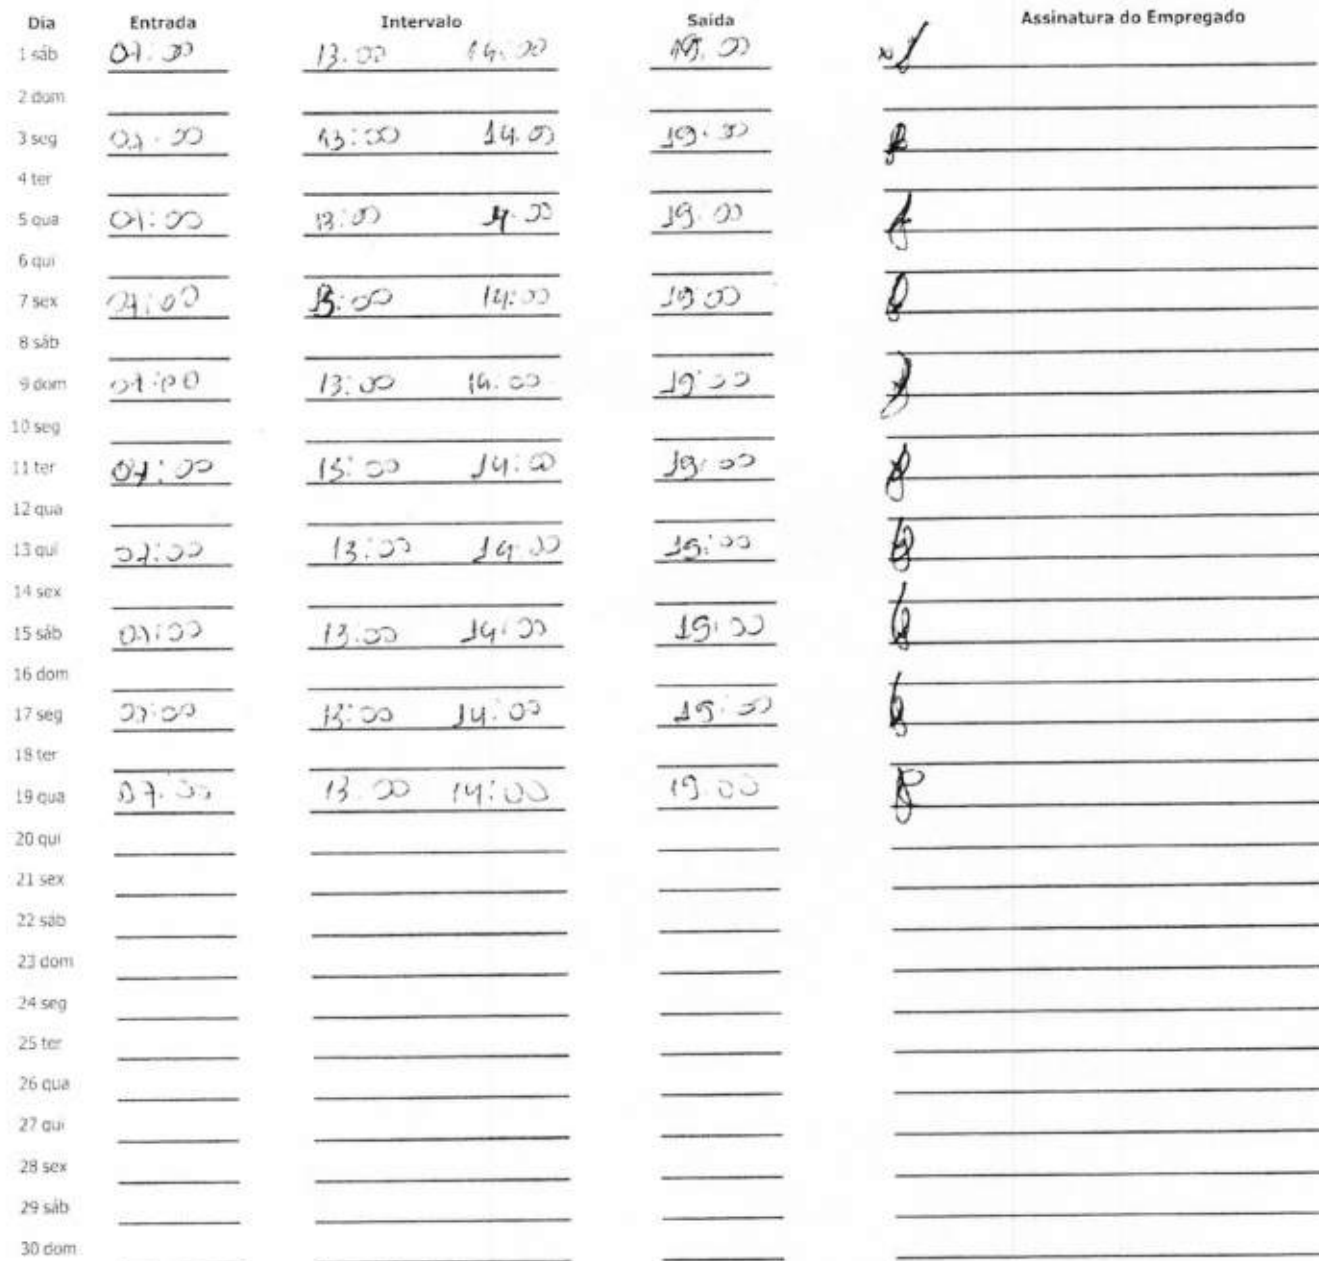 Dia Entrada Intervalo Saída Assinatura do Empregado
1 sáb 07.00 13.00 14.00 19.00
2 dom
3 seg 07.00 13:00 14.00 19.00
4 ter
5 qua 07:00 13:00 14.00 19:00
6 qui
7 sex 07:00 13:00 14:00 19:00
8 sáb
9 dom 07:00 13:00 14:00 19:00
10 seg
11 ter 07:00 13:00 14:00 19:00
12 qua
13 qui 07:00 13:00 14:00 19:00
14 sex
15 sáb 07:00 13:00 14:00 19:00
16 dom
17 seg 07:00 13:00 14:00 19:00
18 ter
19 qua 07.00 13.00 14:00 19.00
20 qui
21 sex
22 sáb
23 dom
24 seg
25 ter
26 qua
27 qui
28 sex
29 sáb
30 dom